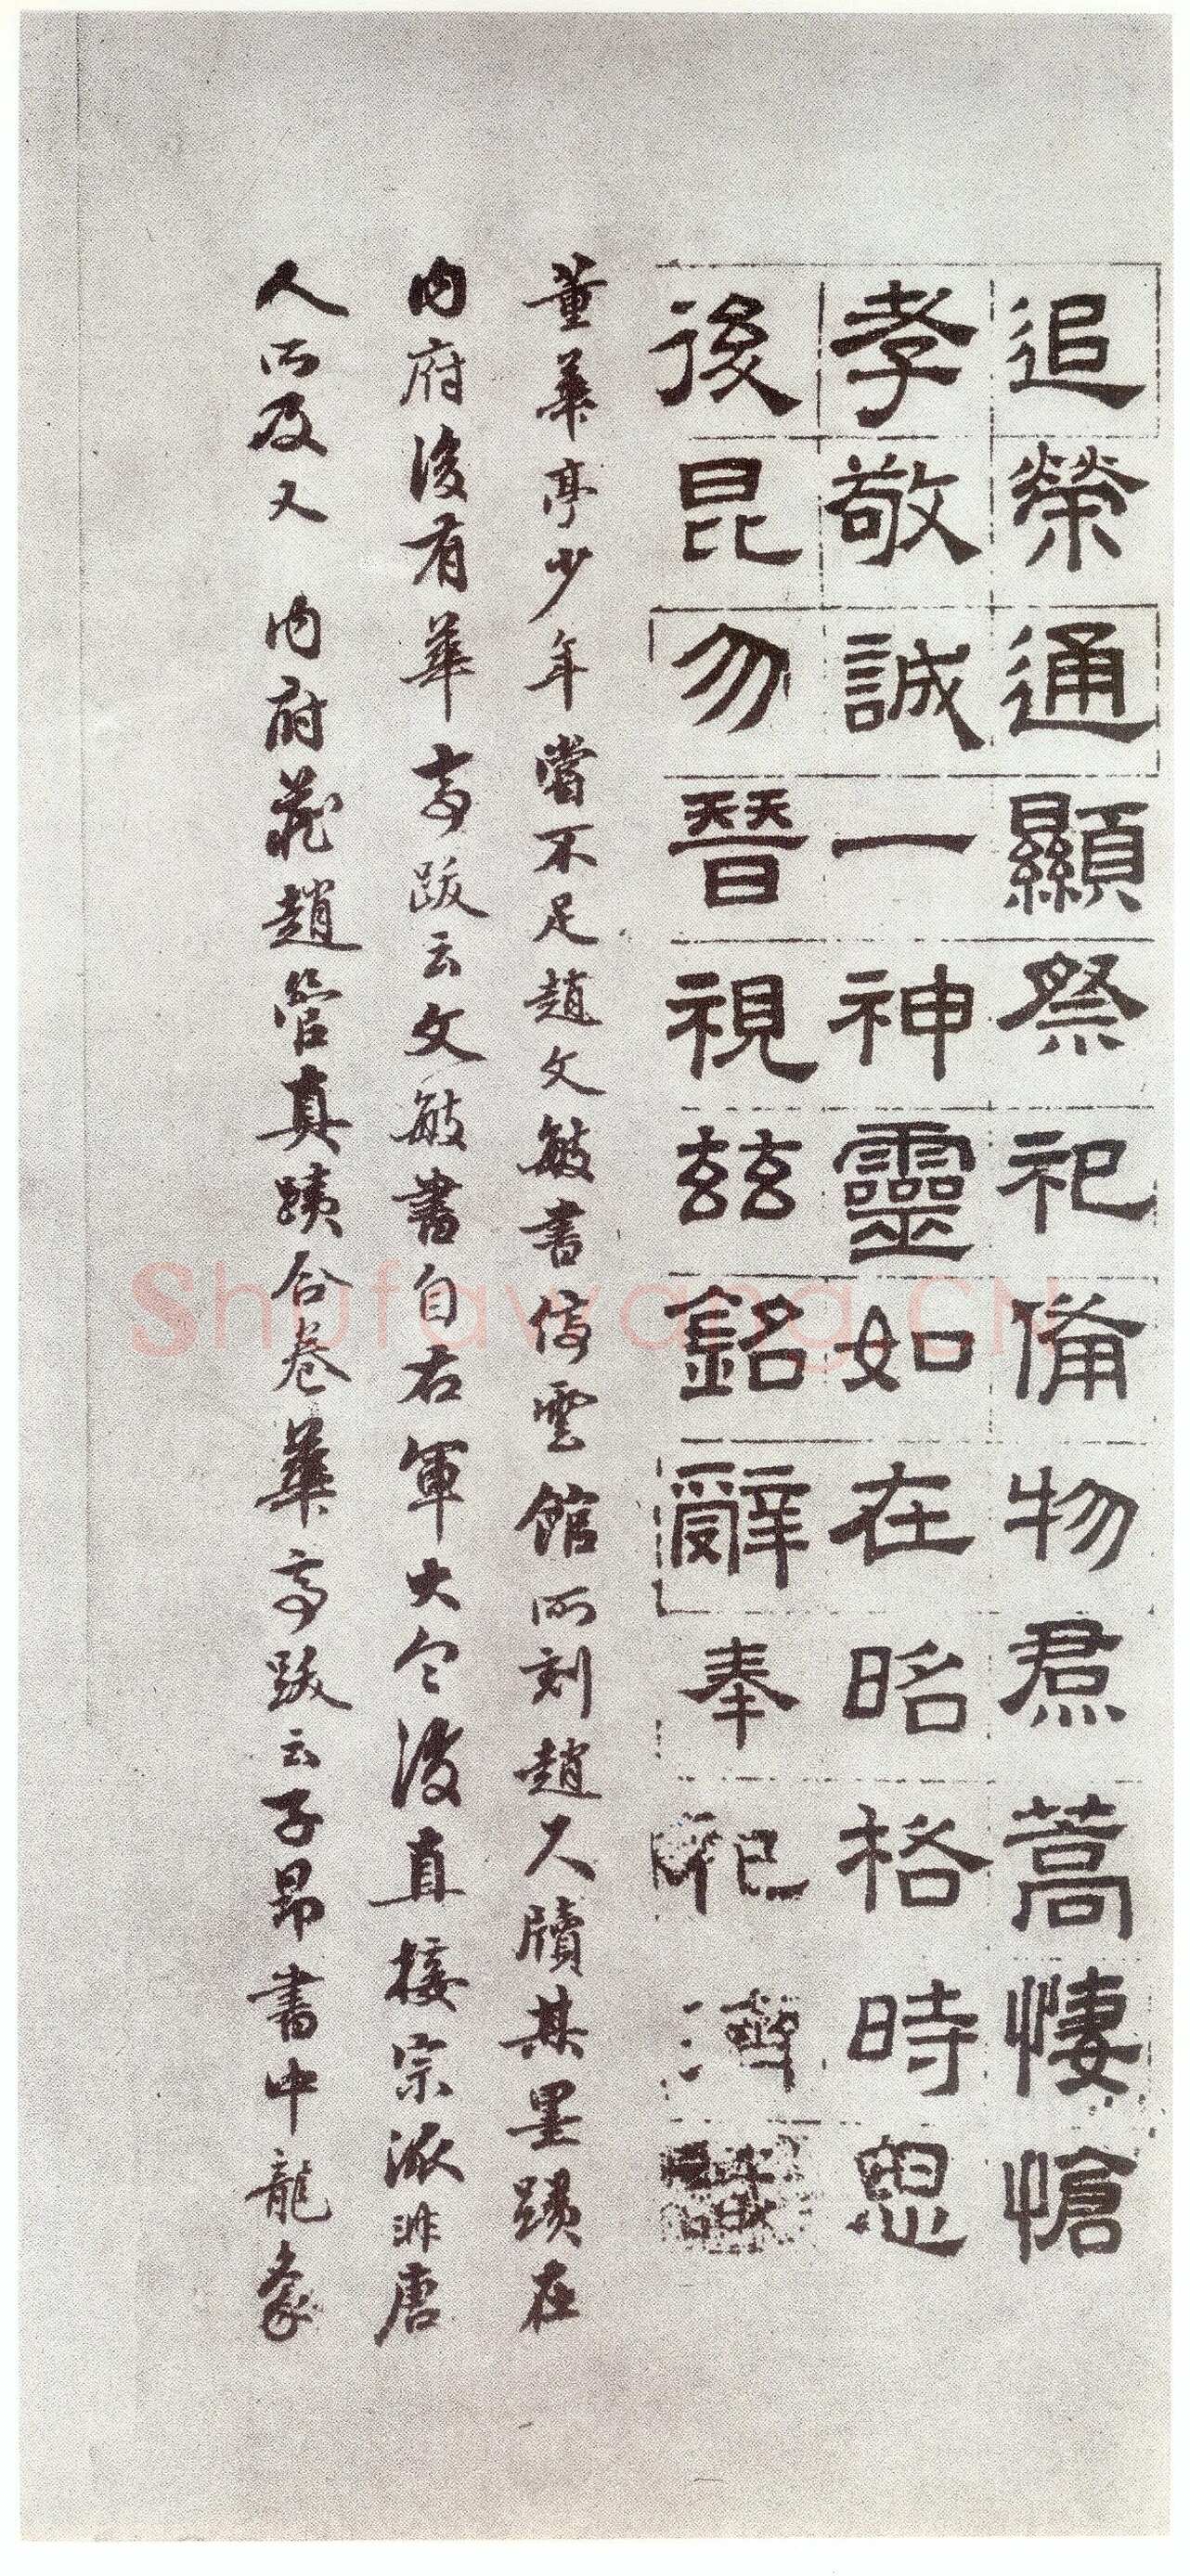 追榮通顯祭祀備物焄蒿悽愴
孝敬誠一神靈如在昭格時思
後昆勿晉視茲銘辭奉祀
董華亭少年嘗不足趙文敏書停雲館所刻趙久牘其墨蹟在
內府後有華亭跋云文敏書自右軍大令後直接宗派非唐
人所及又 內府藏趙管真蹟合卷華亭跋云子昂書中龍象
Shufawang.CN